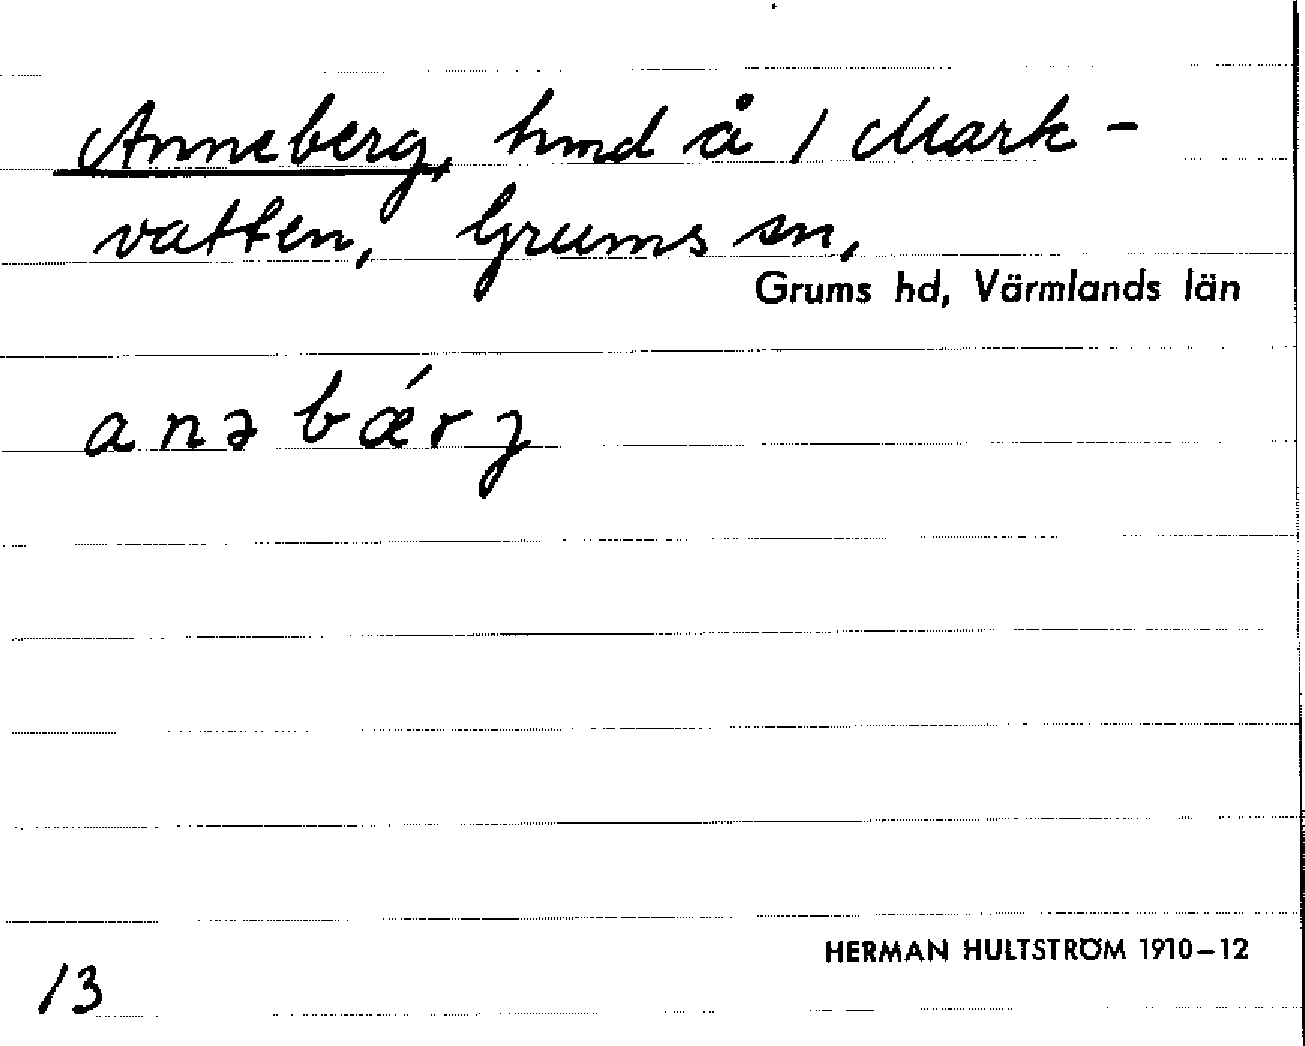 Anneberg, hmd å 1 Mark-
vatten, Grums sn,
Grums hd, Värmlands län
anə bǽrȷ
HERMAN HULTSTRÖM 1910–12
13